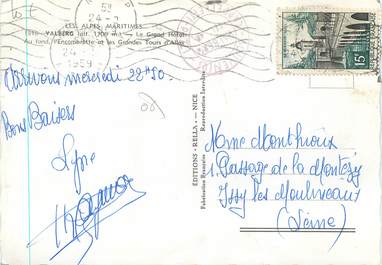 LES ALPES MARITIMES
VALBERG (alt. 1700 m.) — Le Grand Hôtel
Au fond, l'Encombrette et les Grandes Tours d'Allos
24-
1959
15F
Arrivons mercredi 22H50.
Bons Baisers
EDITIONS - RELLA - NICE
Fabrication Française
Reproduction Interdite
Mme Monthioux
Passage de la
Issy les Moulineaux
(Seine)